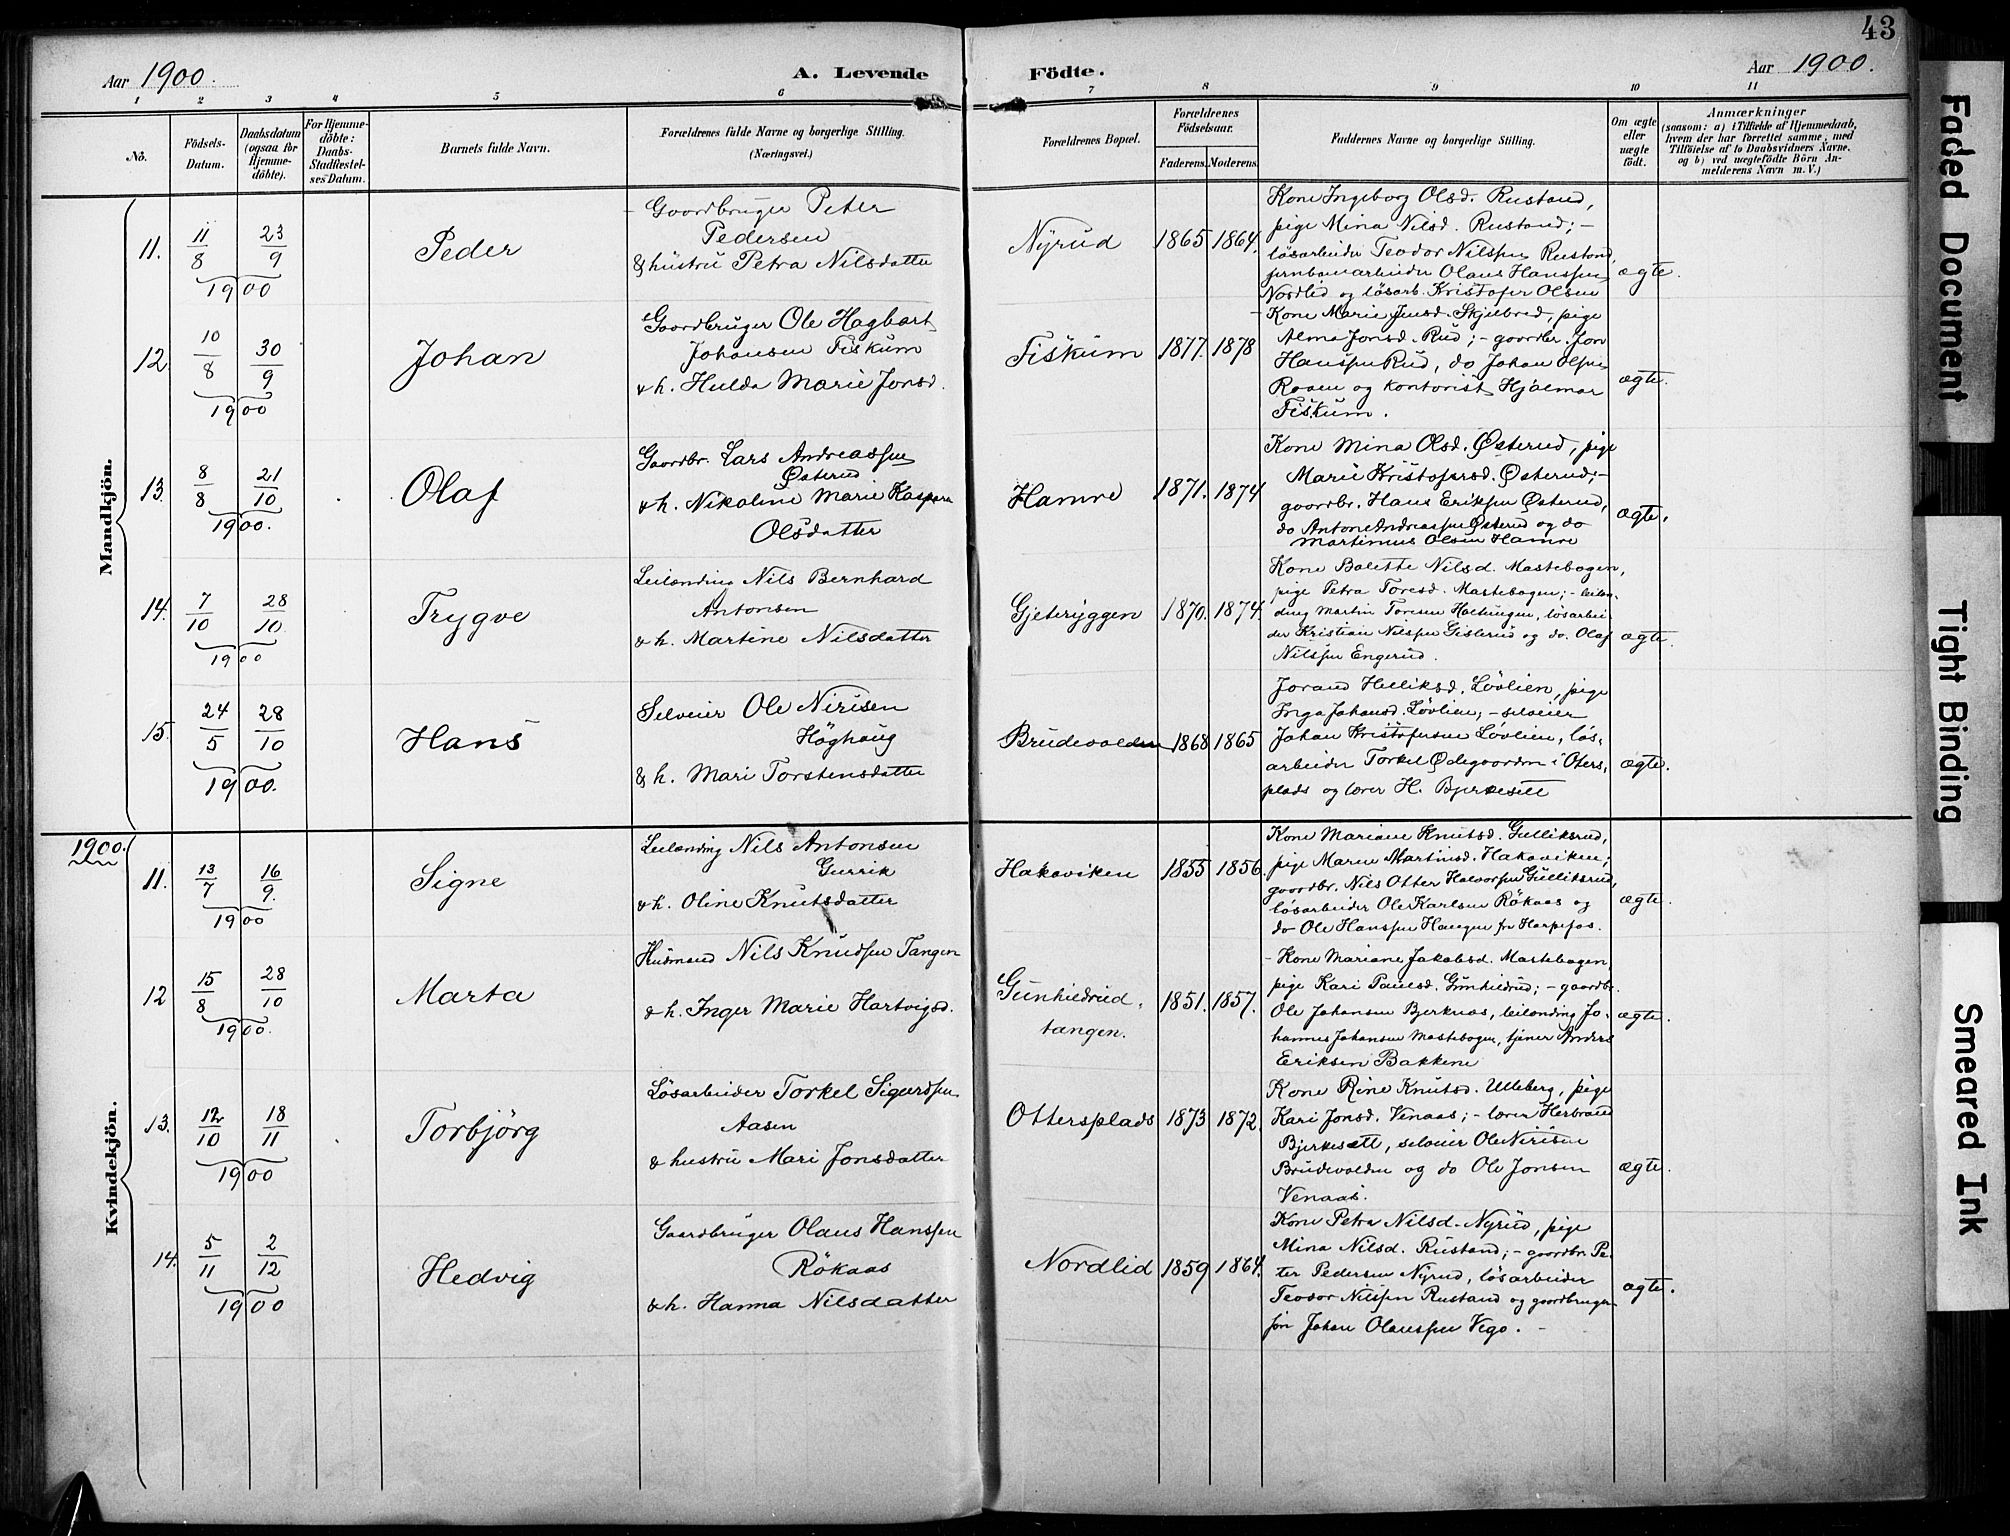 43
Aar 1900.
A. Levende Födte.
Aar 1900.
1 2 3 4 5 6 7 8 9 10 11
Nö.
Födsels-Datum.
Daabsdatum (ogsaa for Hjemmedöbte).
For Hjemmedöbte: Daabs-Stadfæstelses Datum.
Barnets fulde Navn.
Forældrenes fulde Navne og borgerlige Stilling.
(Næringsvei.)
Forældrenes Bopæl.
Forældrenes Födselsaar.
Faderens. Moderens.
Faddernes Navne og borgerlige Stilling.
Om ægte eller uægte födt.
Anmærkninger
(saasom: a) i Tilfælde af Hjemmedaab,
hvem der har forrettet samme, med
Tilföielse af to Daabsvidners Navne.
og b) ved uægtefödte Börn An-
melderens Navn m. V.)
Mandkjön.
11. 11/8 23/9 1900
Peder
Gaardbruger Peter
Pedersen
& hustru Petra Nilsdatter
Nyrud 1865 1864.
Kone Ingeborg Olsd. Rustand,
pige Mina Nilsd. Rustand; -
lösarbeider Teodor Nilssen Rustand,
jernbanearbeider Olaus Hanssen
Nordlid og lösarb. Kristofer Olsen
ægte.
12. 10/8 30/9 1900
Johan
Gaardbruger Ole Hagbart
Johansen Fiskum
& h. Hulda Marie Jonsd.
Fiskum 1877. 1878
Kone Marie Jensd. Skjelbred, pige
Alma Jonsd. Rud; - gaardbr. Jon
Hanssen Rud, do Johan Olsen
Raaen og kontorist Hjalmar
Fiskum.
ægte.
13. 8/8 21/10 1900.
Olaf
Gaardbr. Lars Andreassen
Österud
& h. Nikoline Marie Kaspara
Olsdatter
Hamre 1871. 1874
Kone Mina Olsd. Österud, pige
Marie Kristofersd. Österud; -
gaardbr. Hans Eriksen Österud,
do Anton Andreassen Österud og do
Martinius Olsen Hamre
ægte.
14. 7/10 28/10 1900
Trygve
Leilænding Nils Bernhard
Antonsen
& h. Martine Nilsdatter
Gjeteryggen 1870. 1874.
Kone Bolette Nilsd. Mastebogen,
pige Petra Toresd. Mastebogen; - leilæn-
ding Martin Toresen Holtungen, lösarbei-
der Kristian Nilssen Gislerud og do. Olaf
Nilssen Engerud.
ægte.
15. 24/5 28/10 1900.
Hans
Selveier Ole Nirisen
Höghaug
& h. Mari Torstensdatter
Brudevolden 1868 1865
Jorand Helliksd. Lövlien, pige
Inga Johansd. Lövlien; - selveier
Johan Kristofersen Lövlien, lös-
arbeider Torkel Ödegaarden i Oters-
plads og lærer H. Bjerkesett
ægte.
1900.
Kvindekjön.
11. 13/7 16/9. 1900
Signe
Leilænding Nils Antonsen
Gurrik
& h. Oline Knutsdatter
Hakaviken 1855 1856.
Kone Mariane Knutsd. Gulliksrud,
pige Maren Martinsd. Hakaviken;
gaardbr. Nils Otter Halvorsen Gulliksrud,
lösarbeider Ole Karlsen Rökaas og
do Ole Hanssen Haugen fra Harpefos.
ægte.
12 15/8 28/10 1900.
Marta
Husmand Nils Knudsen Tangen
& h. Inger Marie Hartvigsd.
Gunhildrud-
tangen. 1851. 1857.
Kone Mariane Jakobsd. Mastebogen
pige Kari Paulsd. Gunhildrud; - gaardbr.
Ole Johansen Bjerknæs, leilænding Jo-
hannes Johansen Mastebogen, tjener Anders
Eriksen Bakkene
ægte.
13. 12/10 18/11 1900
Torbjörg
Lösarbeider Torkel Sigurdsen
Aasen
& hustru Mari Jonsdatter
Ottersplads 1873 1872.
Kone Rine Knutsd. Ulleberg, pige
Kari Jonsd. Venaas; - lærer Herbrand
Bjerkesett, selveier Ole Nirisen
Brudevolden og do Ole Jonsen
Venaas.
ægte.
14. 5/11 2/12 1900
Hedvig
Gaardbruger Olaus Hanssen
Rökaas
& h. Hanna Nilsdatter
Nordlid 1859 1864.
Kone Petra Nilsd. Nyrud, pige
Mina Nilsd. Rustand; - gaardbr. Pe-
ter Pedersen Nyrud, lösarbeider
Teodor Nilssen Rustand og gaardbruger-
sön Johan Olaussen Vego. -
ægte.
Faded Document
Tight Binding
Smeared Ink